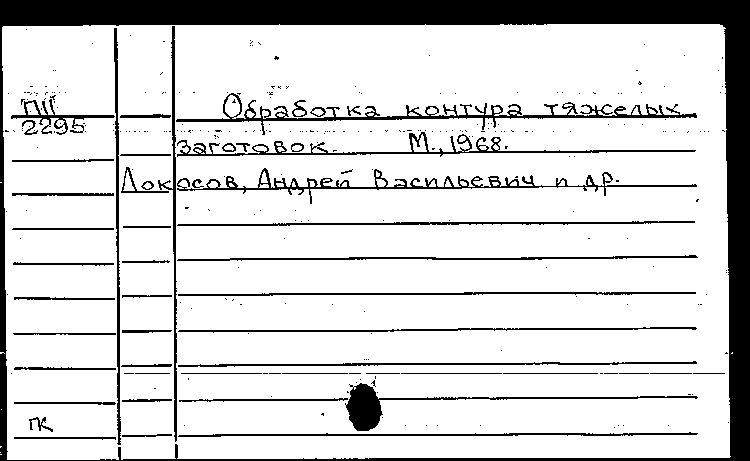 ПII Обработка контура тяжелых
2295
заготовок. М., 1968.
Локосов, Андрей Васильевич и др.
ГК